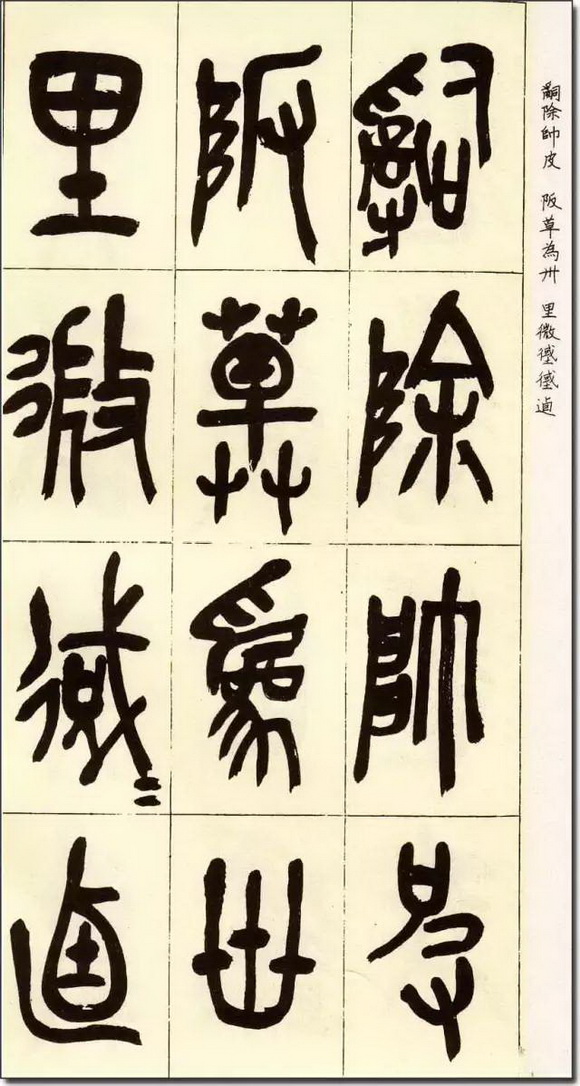 嗣除帥皮 阪草為卅 里微逌
嗣除帥皮
阪草為卅
里微逌